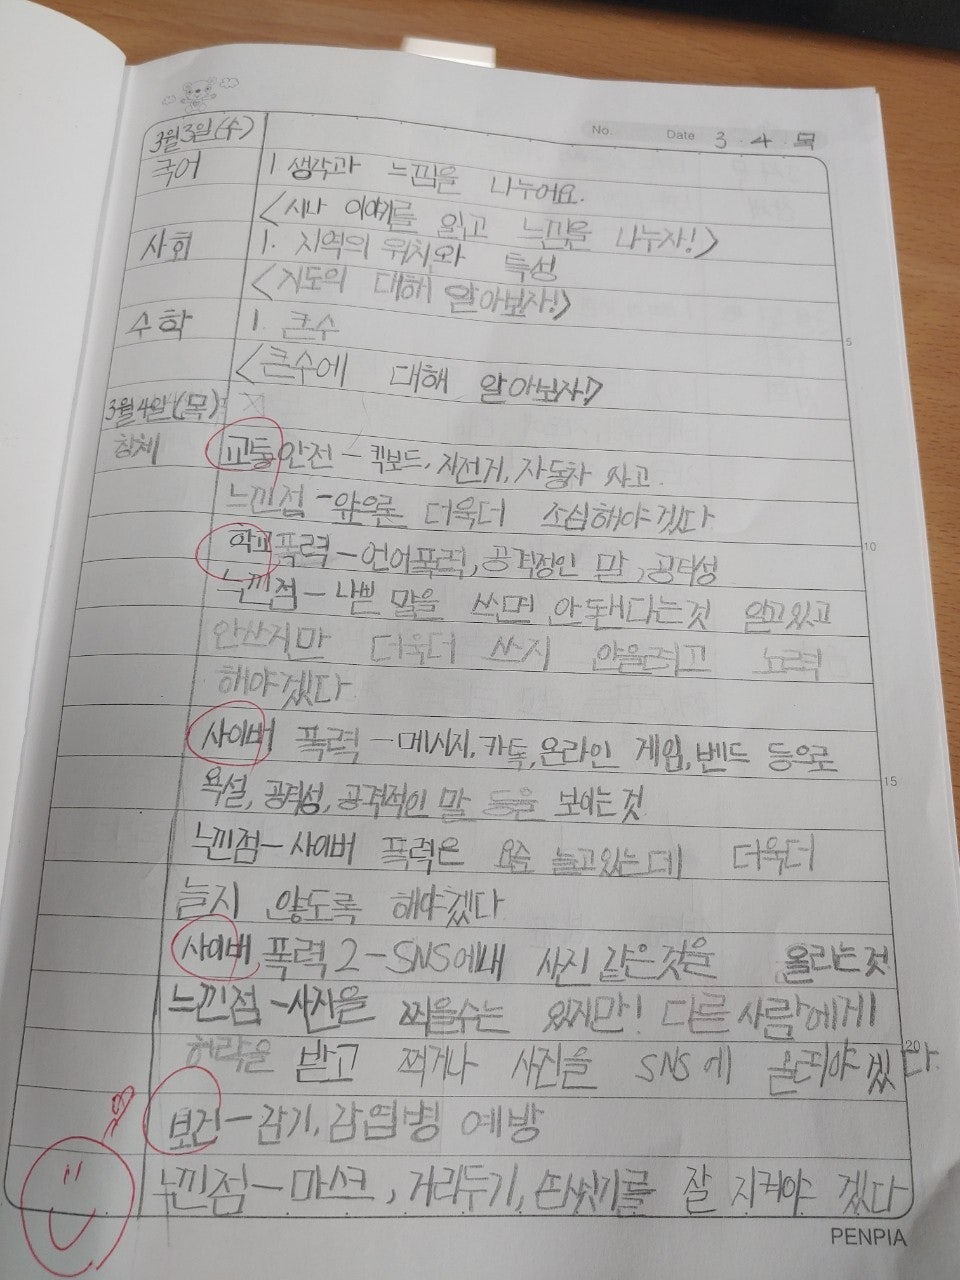 3월3일(수)
No. Date 3. 4. 목
국어 1 생각과 느낌을 나누어요.
<시나 이야기를 읽고 느낌을 나누자!>
사회 1. 지역의 위치와 특성
<지도의 대해 알아보자!>
수학 1. 큰수
5
<큰수에 대해 알아보자!>
3월4일(목)
창체 교통안전 - 킥보드, 자전거, 자동차 사고.
느낀점 - 앞으론 더욱더 조심해야겠다
10
학교폭력 - 언어폭력, 공격적인 말, 공터성
느낀점 - 나쁜 말을 쓰면 안됀다는것 알고있고
안쓰지만 더욱더 쓰지 안을려고 노력
해야겠다
사이버 폭력 - 메시지, 카톡, 온라인 게임, 밴드 등으로
15
욕설, 공턱성, 공격적인 말 등을 보이는것
느낀점 - 사이버 폭력은 요즘 늘고있는데 더욱더
늘지 않도록 해야겠다
사이버 폭력 2 - SNS에내 사진 같은것을 올리는것
느낀점 - 사진을 찍을수는 있지만! 다른사람에게
20
허락을 받고 찍거나 사진을 SNS에 올려야겠다.
보건 - 감기, 감염병 예방
느낀점 - 마스크, 거리두기, 손씻기를 잘 지켜야 겠다
PENPIA